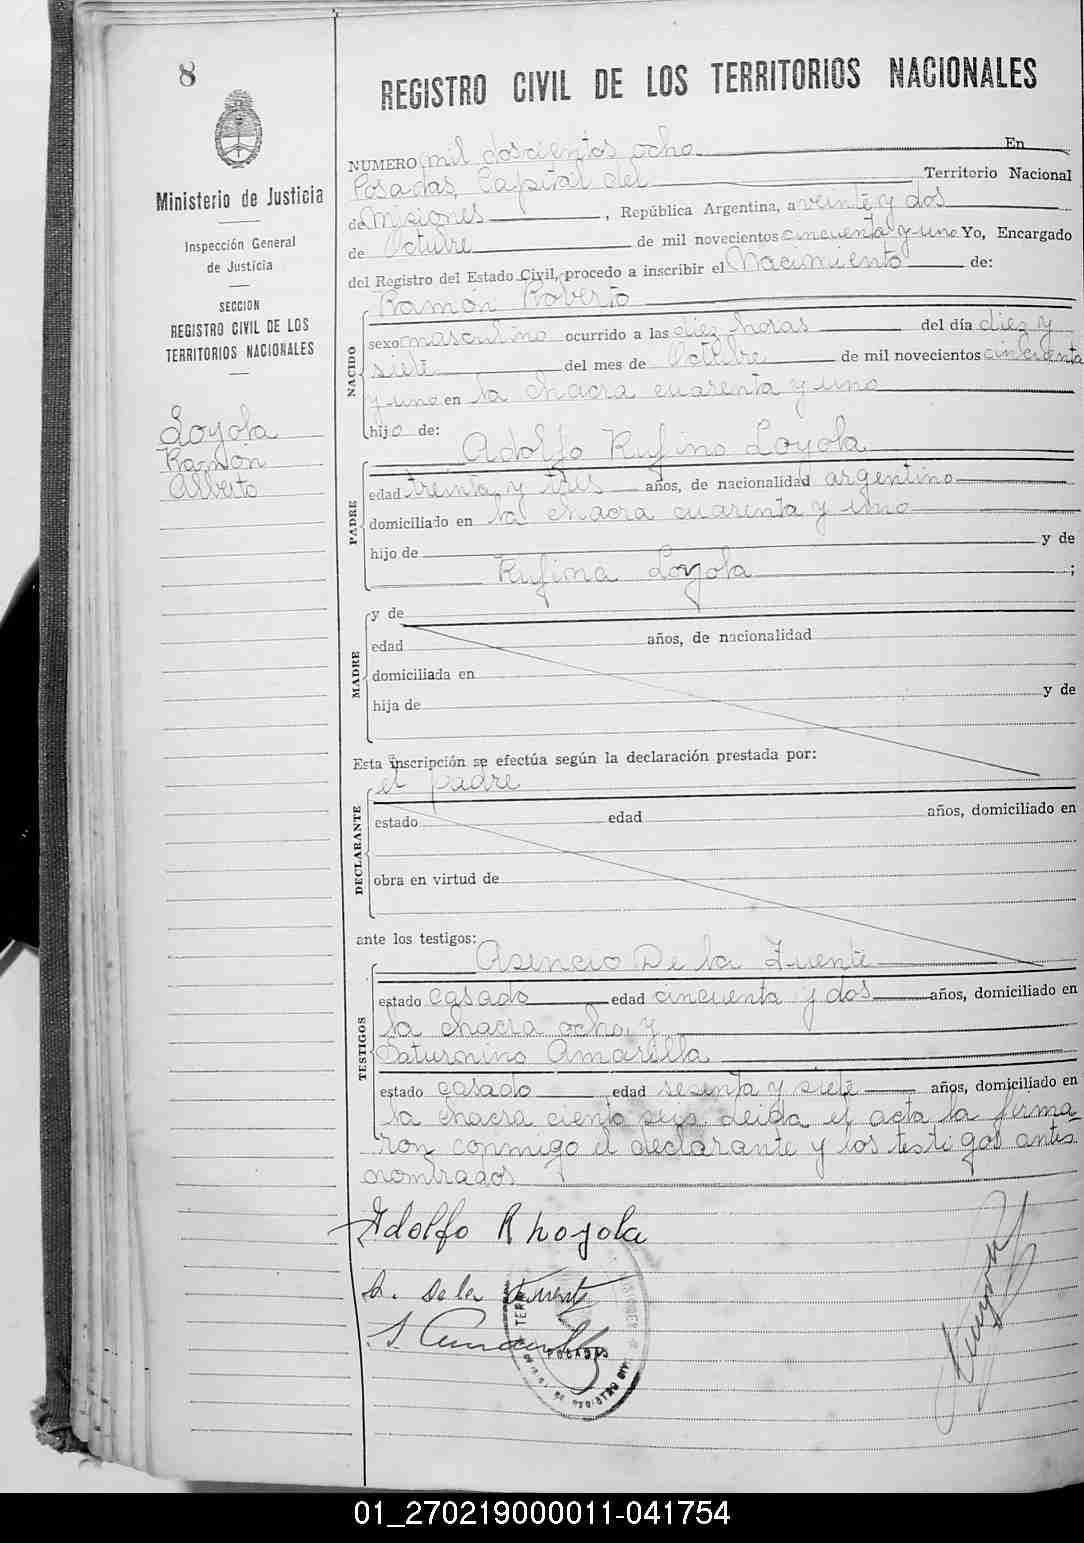 8
REGISTRO CIVIL DE LOS TERRITORIOS NACIONALES
Ministerio de Justicia
Inspección General
de Justicia
SECCION
REGISTRO CIVIL DE LOS
TERRITORIOS NACIONALES
Loyola
Ramón
Alberto
NUMERO mil doscientos ocho En
Posadas, Capital del Territorio Nacional
de Misiones, República Argentina, a veinte y dos
de Octubre de mil novecientos cincuenta y uno Yo, Encargado
del Registro del Estado Civil, procedo a inscribir el Nacimiento de:
Ramón Roberto
NACIDO
sexo masculino ocurrido a las diez horas del día diez y
siete del mes de Octubre de mil novecientos cincuenta
y uno en la chacra cuarenta y uno
hijo de:
Adolfo Rufino Loyola
PADRE
edad treinta y tres años, de nacionalidad argentino
domiciliado en la chacra cuarenta y uno
hijo de y de
Rufina Loyola ;
MADRE
y de
edad años, de nacionalidad
domiciliada en
hija de y de
Esta inscripción se efectúa según la declaración prestada por:
el padre
DECLARANTE
estado edad años, domiciliado en
obra en virtud de
ante los testigos:
Asencio De la Fuente
TESTIGOS
estado casado edad cincuenta y dos años, domiciliado en
la chacra ocho, y
Saturnino Amarilla
estado casado edad sesenta y siete años, domiciliado en
la chacra ciento seis. Leida el acta la firma
ron conmigo el declarante y los testigos antes
nombrados
Adolfo R Loyola
A. De la Fuente
S. Amarilla
POSADAS
01_270219000011-041754